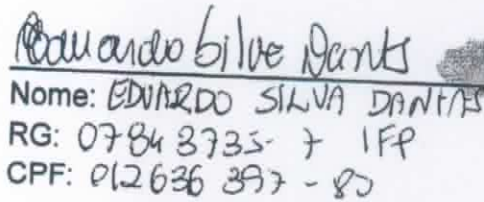 Eduardo Silva Dantas
Nome: EDUARDO SILVA DANTAS
RG: 07843735-7 IFP
CPF: 012636397-80